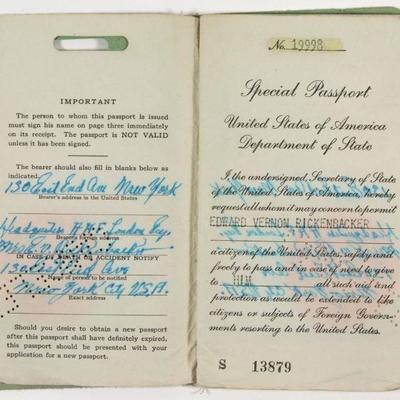 IMPORTANT
The person to whom this passport is issued
must sign his name on page three immediately
on its receipt. The passport is NOT VALID
unless it has been signed.
The bearer should also fill in blanks below as
indicated.
130 East End Ave New York
Bearer's address in the United States
Headquarters London Eng.
Bearer's foreign address
Mrs E. V. Rickenbacker
IN CASE OF DEATH OR ACCIDENT NOTIFY
130 East End Ave
Name of person to be notified
New York City U.S.A.
Exact address
Should you desire to obtain a new passport
after this passport shall have definitely expired,
this passport should be presented with your
application for a new passport.
No. 19998
Special Passport
United States of America
Department of State
I, the undersigned, Secretary of State
of the United States of America, hereby
request all whom it may concern to permit
EDWARD VERNON RICKENBACKER
a citizen of the United States, safely and
freely to pass and in case of need to give
HIM all such aid and
protection as would be extended to like
citizens or subjects of Foreign Govern-
ments resorting to the United States.
S 13879